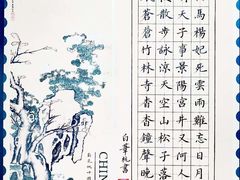 馬楊妃死雲雨難忘日月
天子事景陽宮井又何人
散步詠涼天空山松子落
蒼蒼竹林寺杳杳鐘聲晚
CHIN